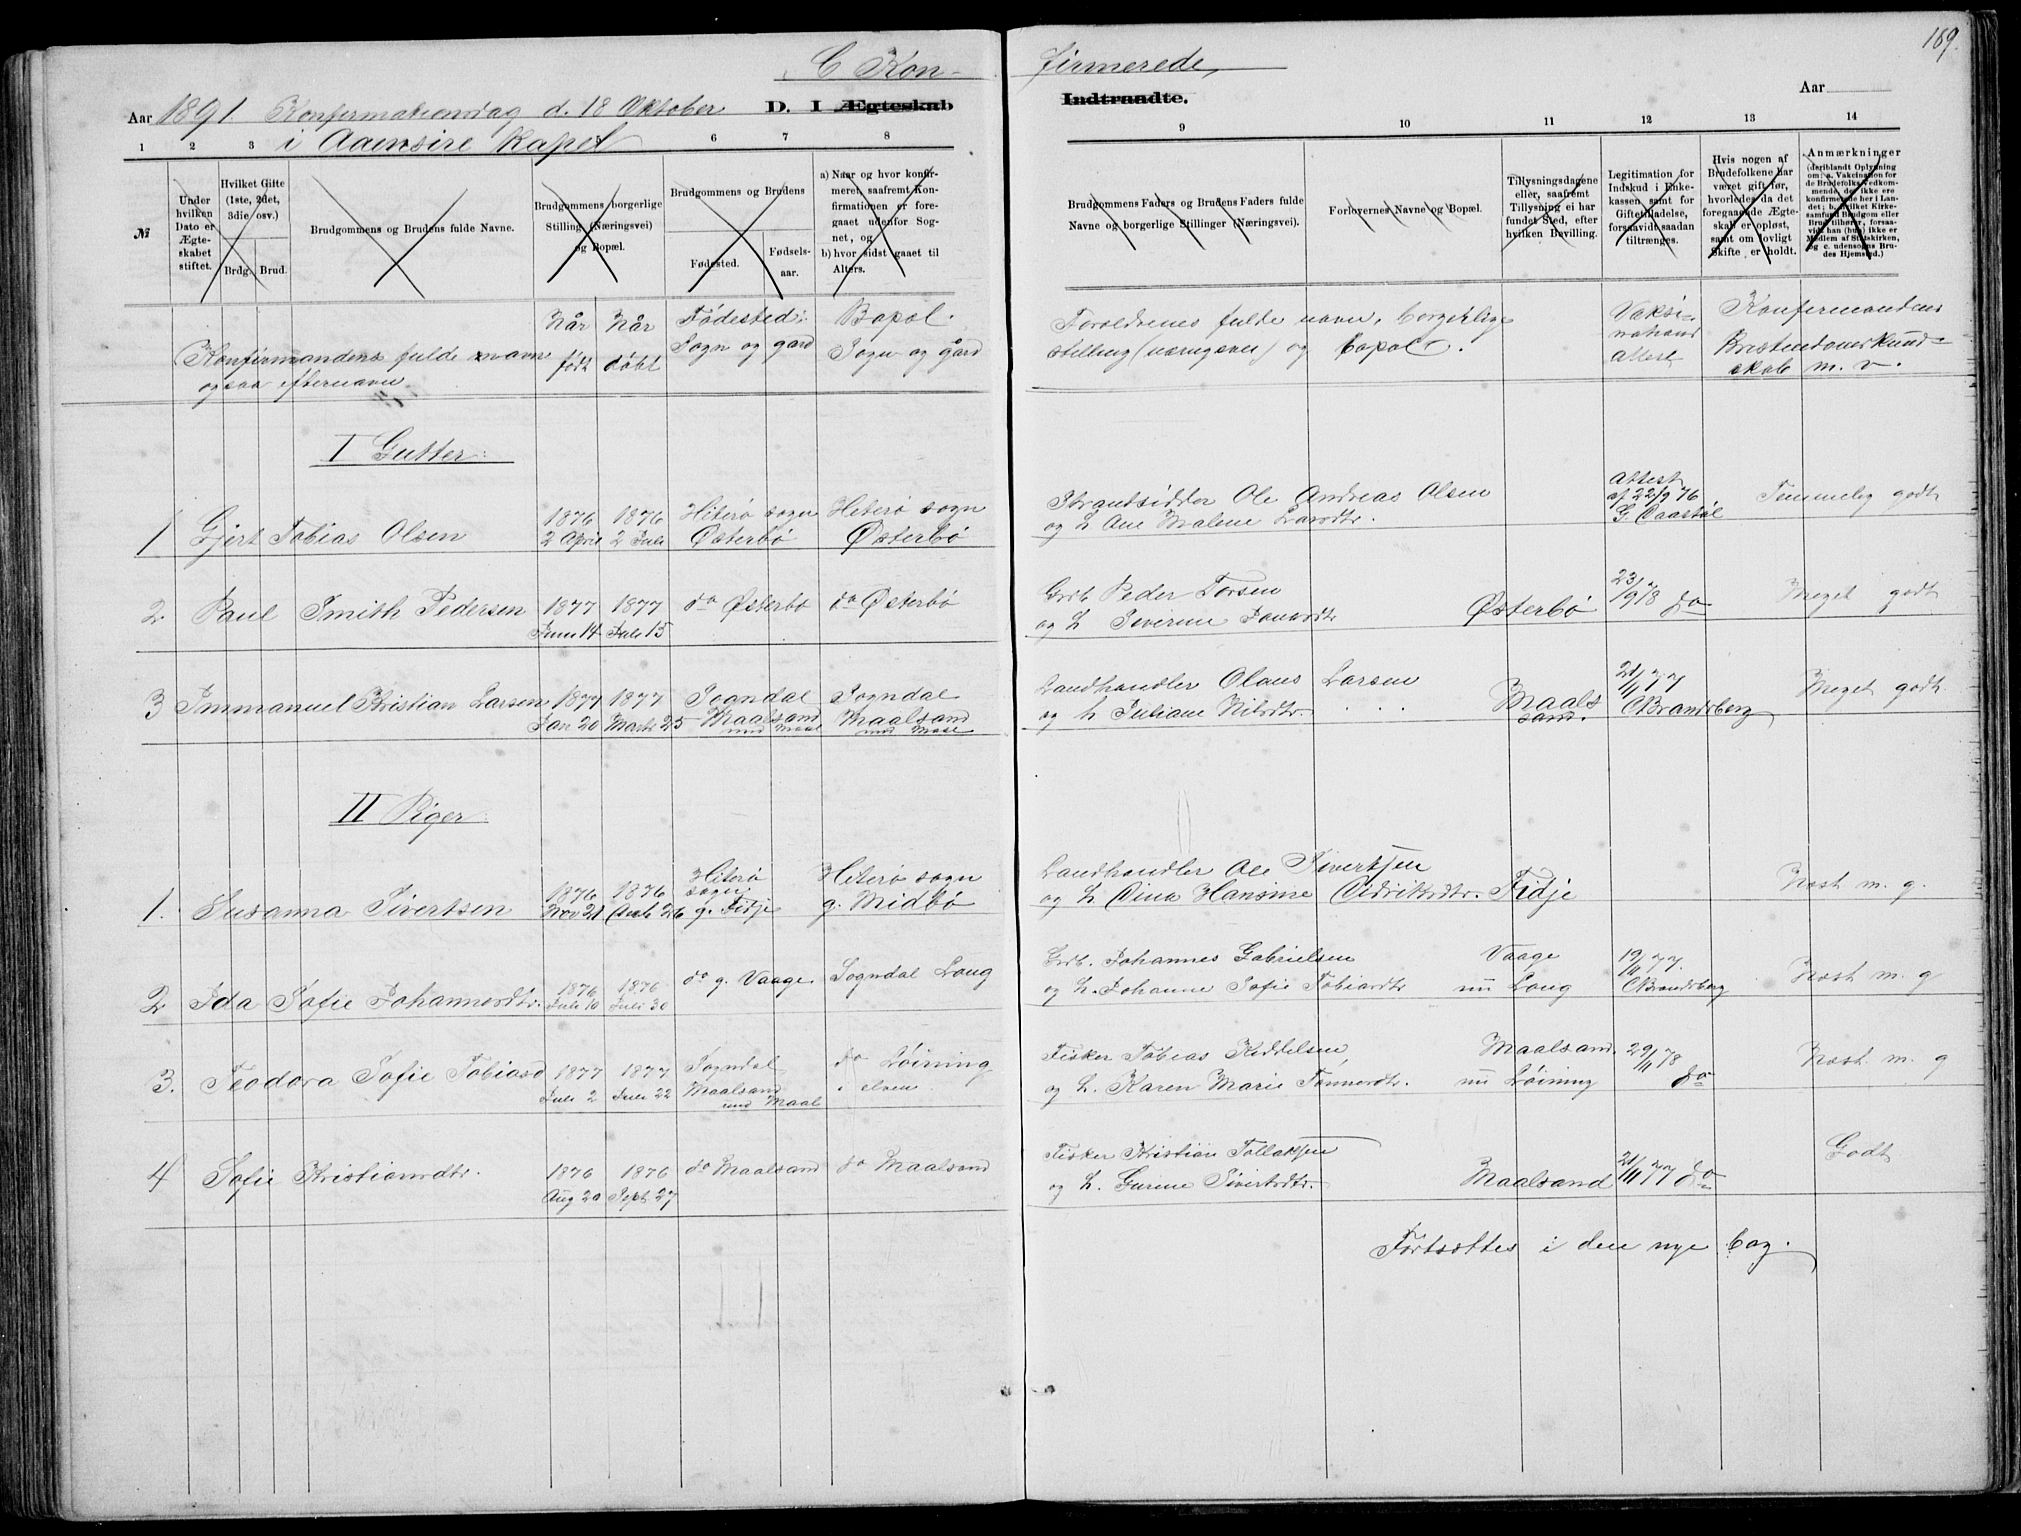 169.
C Kon-
firmerede,
Aar 1891. Konfirmationsdag d. 18 Oktober D. I Ægteskab
Indtraadte. Aar
i Aaensire Kapel
1 2 3 5 6 7 8 9 10 11 12 13 14
№
Under hvilken Dato er Ægteskabet stiftet.
Hvilket Gifte (1ste, 2det, 3die osv.)
Brdg. Brud.
Brudgommens og Brudens fulde Navne.
Brudgommens borgerlige Stilling (Næringsvei) og Bopæl.
Brudgommens og Brudens
Fødested. Fødselsaar.
a) Naar og hvor konfirmeret, saafremt Konfirmationen er foregaaet udenfor Sognet, og
b) hvor sidst gaaet til Alters.
Brudgommens Faders og Brudens Faders fulde Navne og borgerlige Stillinger (Næringsvei).
Forlovernes Navne og Bopæl.
Tillysningsdagene eller, saafremt Tillysning ei har fundet Sted, efter hvilken Bevilling.
Legitimation for Indskud i Enkekassen, samt for Giftetilladelse, forsaavidt saadan tiltrænges.
Hvis nogen af Brudefolkene har været gift før, hvorledes da det foregaaende Ægteskab er opløst, samt om lovligt Skifte er holdt.
Anmærkninger (deriblandt Oplysning om: a. Vakcination for de Brudefolks Vedkommende, de ikke ere konfirmerede her i Landet; b. hvilket Kirkesamfund Brudgom eller Brud tilhører, forsaavidt han (hun) ikke er Medlem af Statskirken, og c. udensogns Brudes Hjemsted.)
Konfirmandens fulde navn
ogsaa efternavn
Når født
Når døbt
Fødested: Sogn og gard
Bopæl. Sogn og gård
Foreldrenes fulde navn, borgerlige
stilling (næringsvei) og bopæl.
Vaksinations attest
Konfirmandens
Kristendomskundskab m. v.
I Gutter:
1 Gjert Tobias Olsen 1876 2 April 1876 2 Juli Hiterø sogn Østerbø Hiterø sogn Østerbø
Strandsidder Ole Andreas Olsen
og h. Ane Malene Larsdtr.
Attest af 22/9 76 Temmelig godt
2 Paul Smith Pedersen 1877 Juni 14 1877 Juli 15 do Østerbø do Østerbø
Grdb. Peder Torsen
og h. Severine Østerbø 23/9 78 do Meget godt
3 Immanuel Kristian Larsen 1877 Jan 20 1877 Marts 25 Sogndal Maalsand Sogndal Maalsand
Landhandler Olaus Larsen
og h. Juliane Nilsdtr. Maalsand. 21/11 77 C Brandsberg Meget godt
II Piger
1. Susanna Sivertsen 1876 Nov 21 1876 26 Hiterø sogn: g. Fidje Hiterø sogn g. Midbø
Landhandler Ole Sivertsen
og h. Hansine Fidje Næst m. g.
2 Ida Sofie Johannesdtr. 1876 Juli 10 1876 Juli 30 do g. Vaage. Sogndal Loug
Grdb. Johannes Gabrielsen Vaage
og h. Johanne Sofie Tobiasdtr nu Loug 19/11 77. C Brandsberg Næst m. g
3. Teodora Sofie Tobiasd 1877 Juli 2 1877 Juli 22 Sogndal Maalsand do Løining i elven
Fisker Tobias Keddelsen, Maalsand.
og h. Karen Marie Tønnesdtr. nu Løining 29/11 78 do Næst m. g
4 Sofie Kristiansdtr. 1876 Aug 20 1876 Sept 27 do Maalsand do Maalsand
Fisker Kristian Tollaksen
og h. Gurine Sivertsdtr. Maalsand 21/11 77 do Godt
Fortsættes i den nye bog.